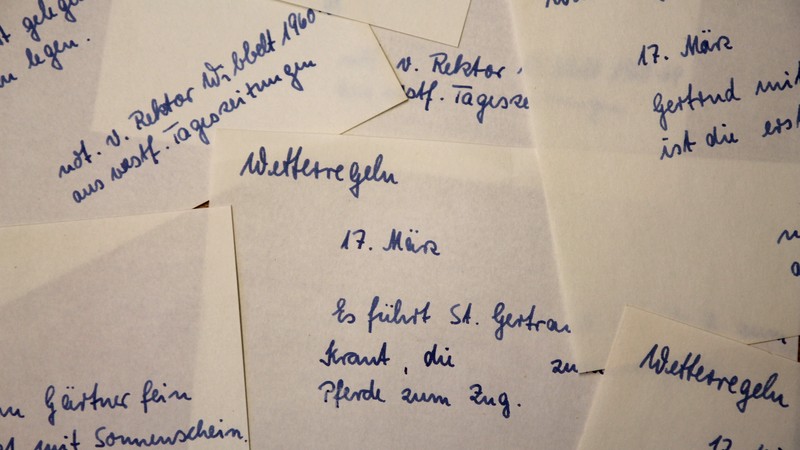 legen.
not. v. Rektor Wibbelt 1960
aus westf. Tageszeitungen
v. Rektor
17. März
Gertrud mit
ist die
Wetterregeln
17. März
Es führt St. Gertrau
Kraut, die zu
Pferde zum Zug.
Gärtner fein
mit Sonnenschein.
Wetterregeln
17.